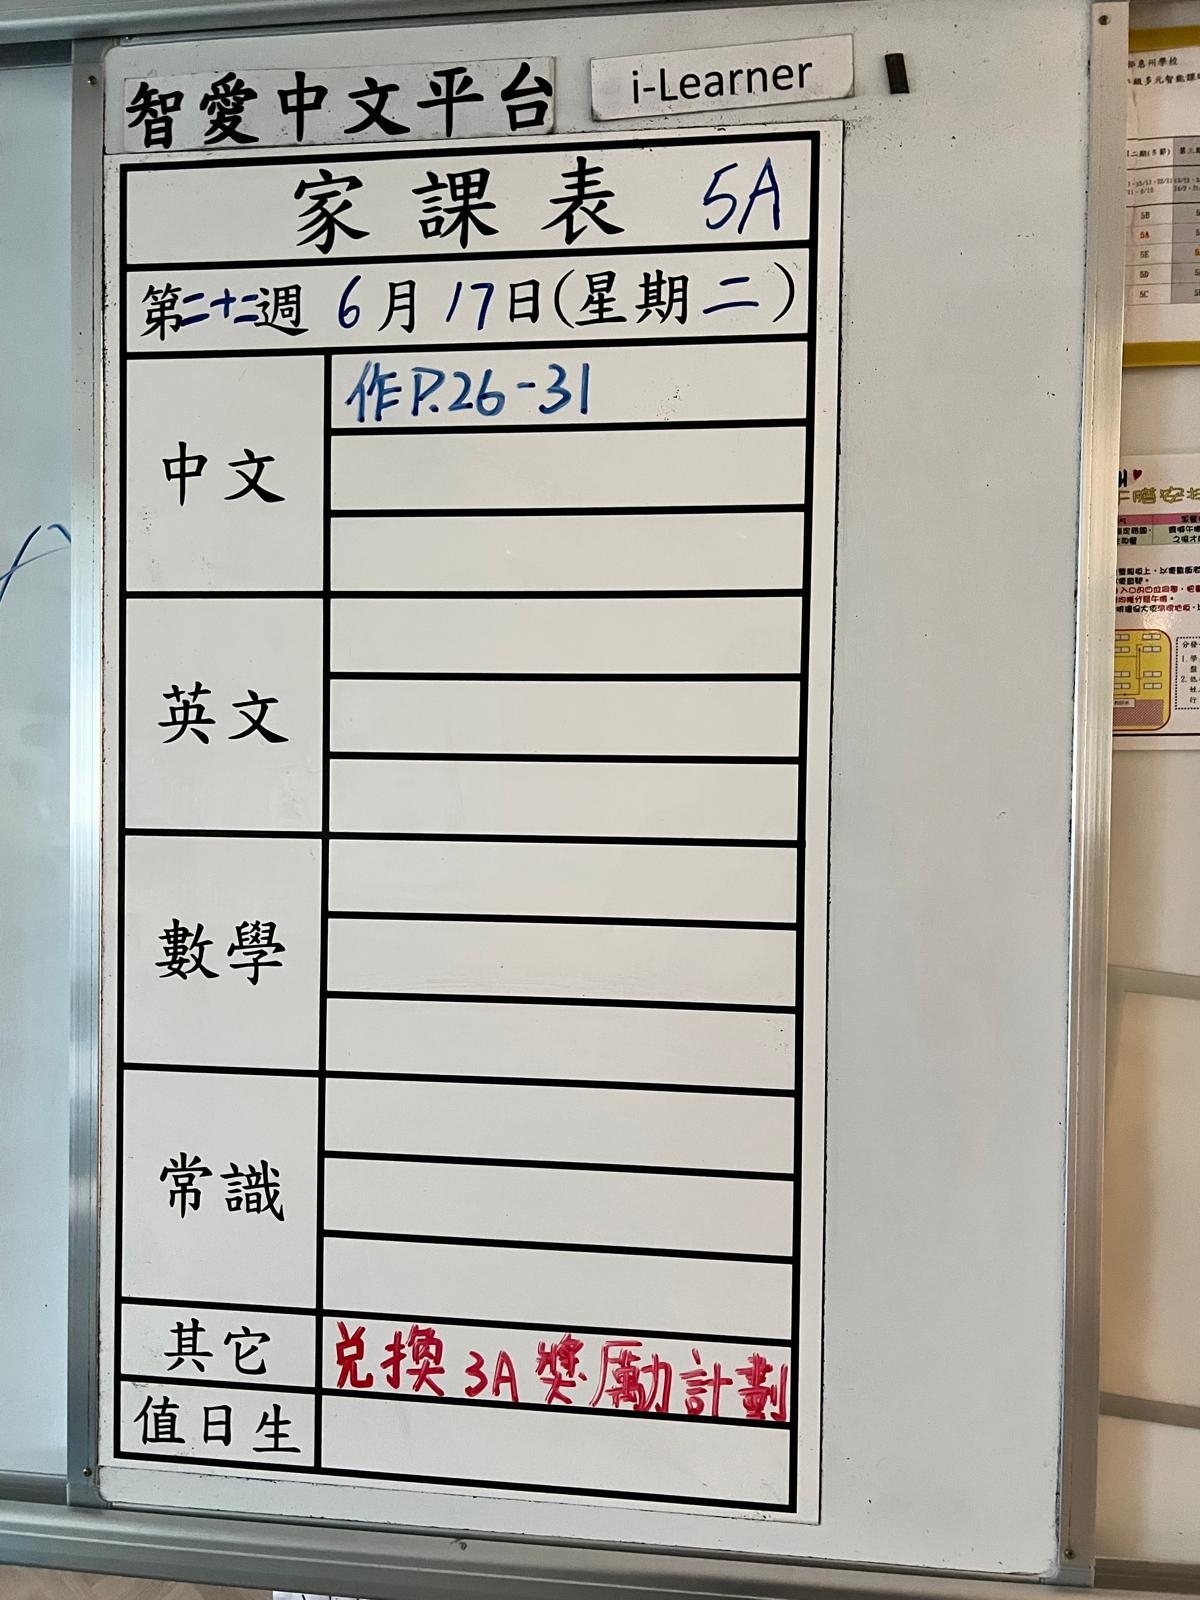 智愛中文平台
i-Learner
家課表 5A
第二十二週 6月17日(星期二)
中文
作P.26-31
英文
數學
常識
其它
兌換3A獎勵計劃
值日生
5B
5A
5E
5D
5C